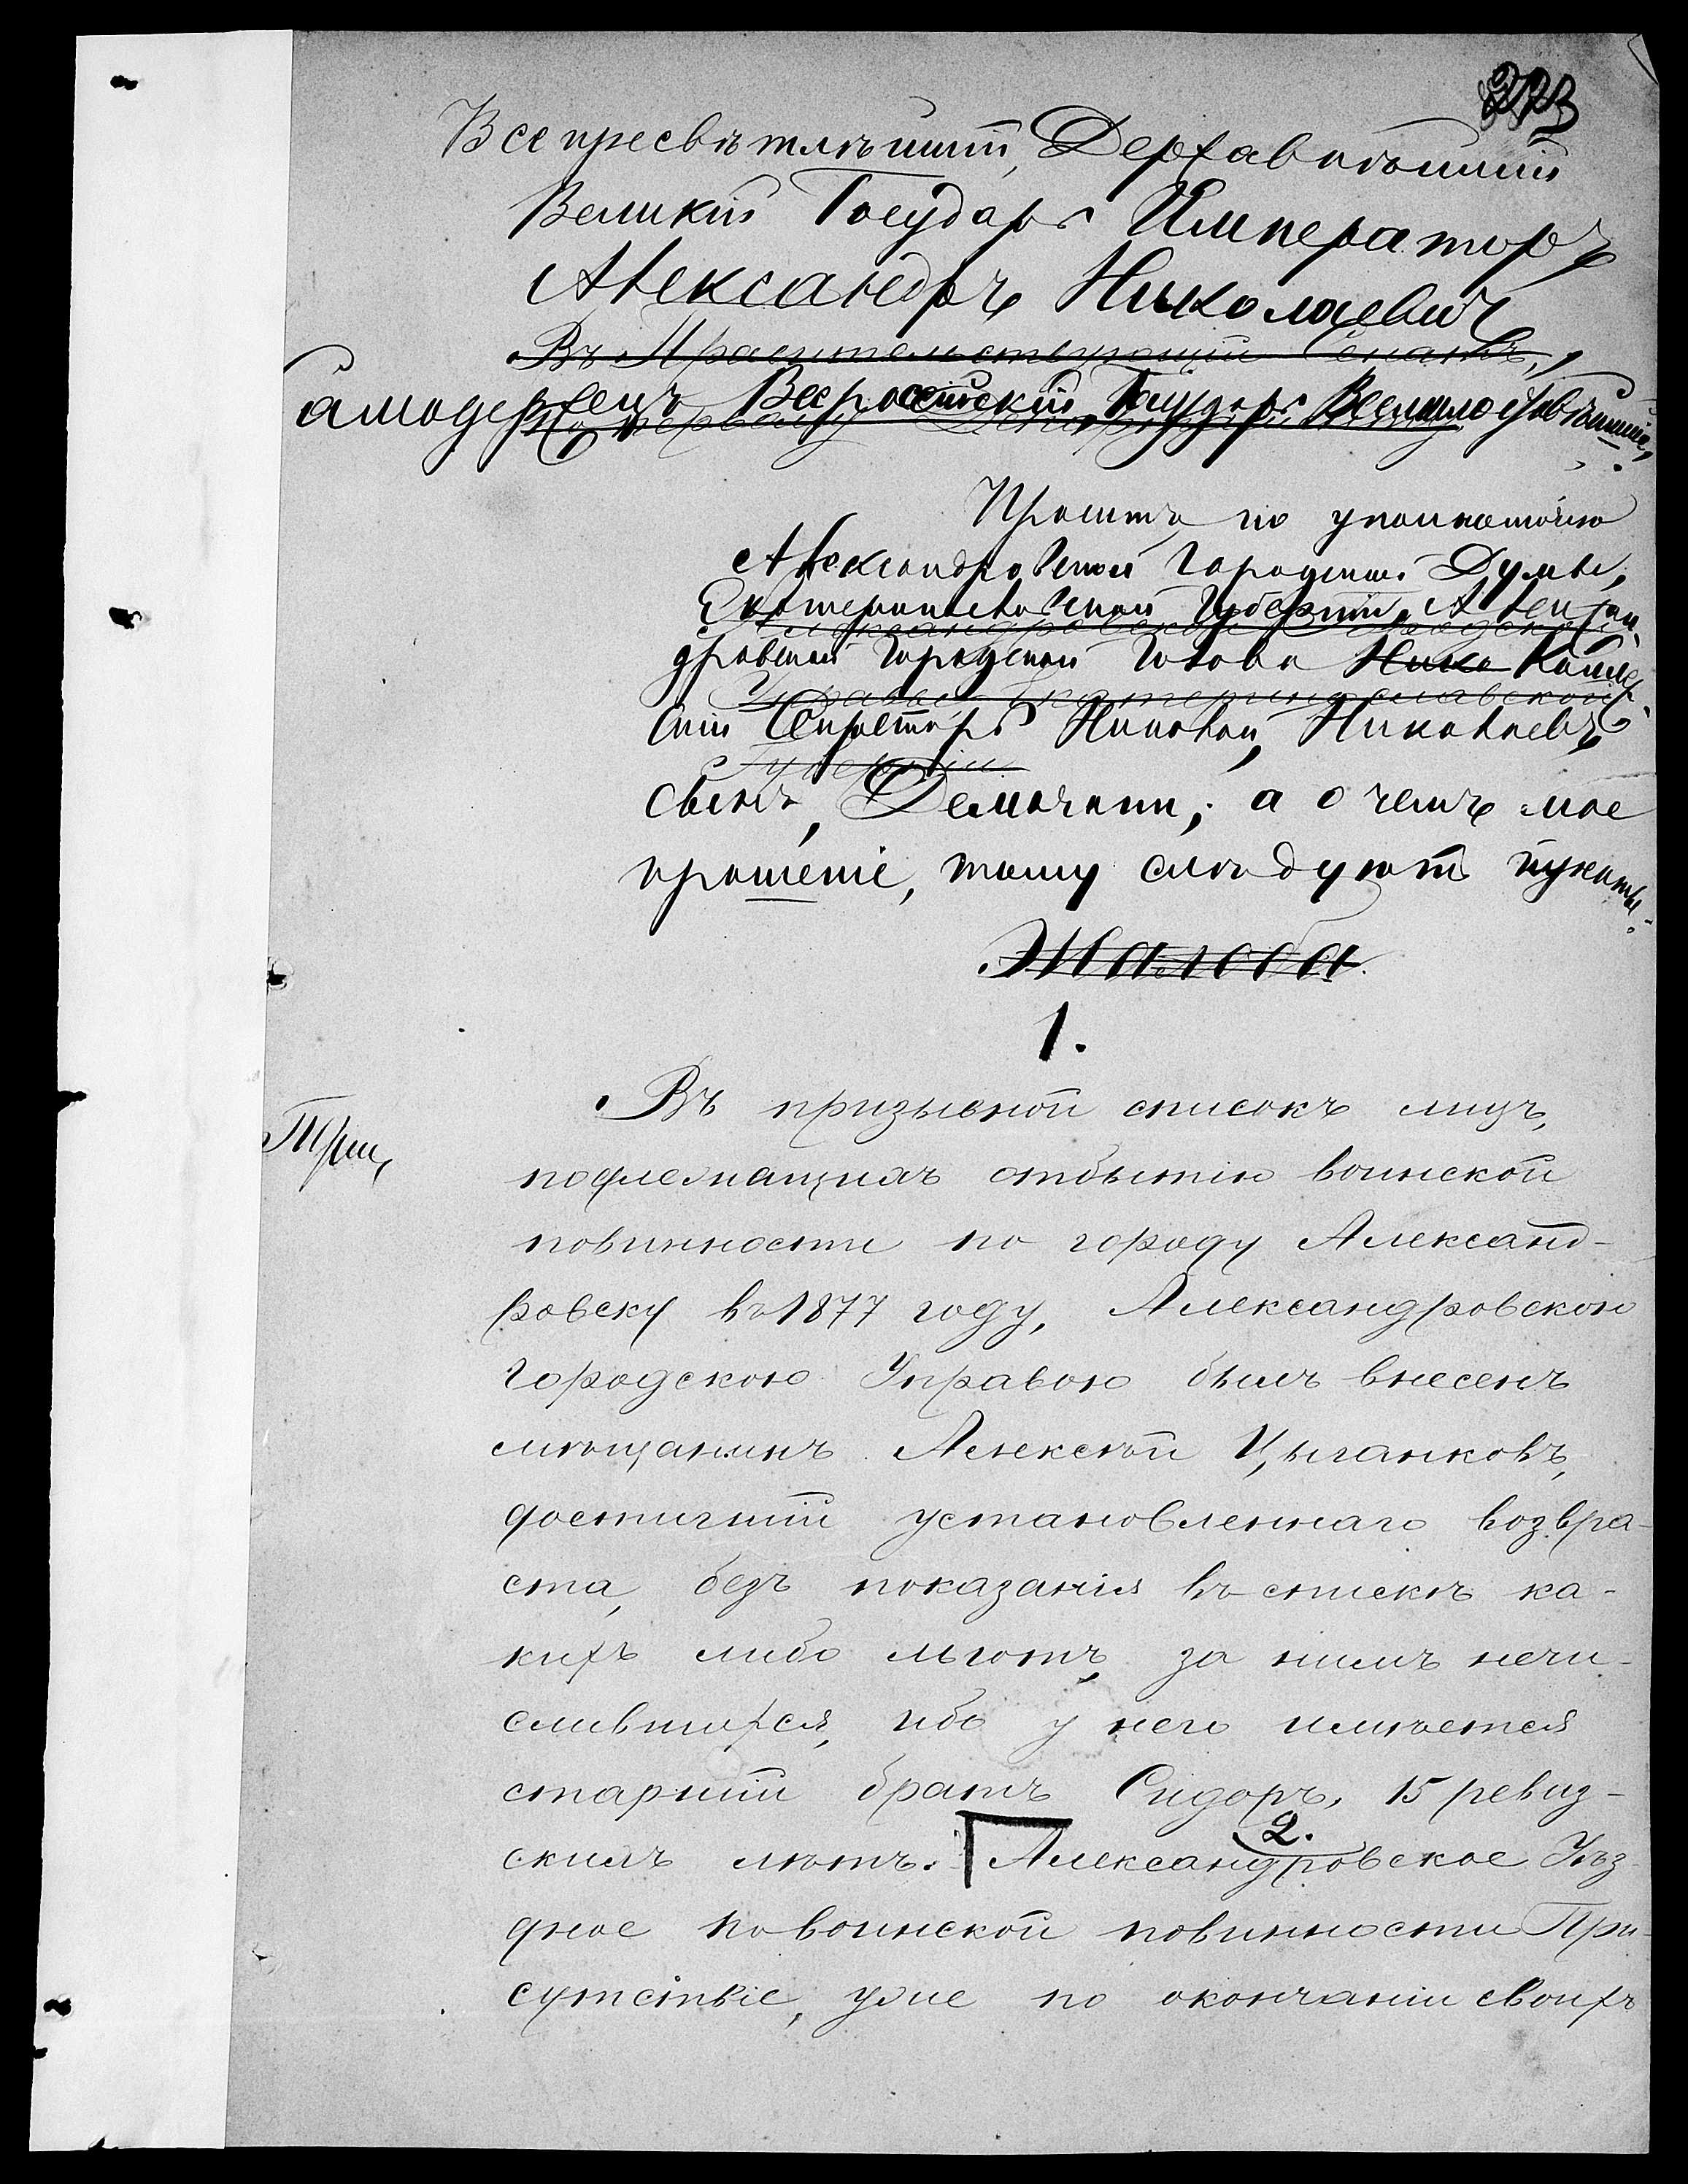 223
Всепресвѣтлѣйшій, Державнѣйшій
Великій Государь Императоръ
Александръ Николаевичъ
Въ Правительствующій Сенатъ,
Самодержецъ Всероссійскій Государь Всемилостивѣйшій,
По первому Департаменту
Проситъ по уполномочію
Александровской Городской Думы,
Екатеринославской Губерніи, Алексан-
Александровской Городской
дровскій Городской Голова Нико Коллеж-
Управы Екатеринославской
скій Секретарь Николай Николаевъ
Губерніи
сынъ, Демочани, а о чемъ мое
прошеніе, тому слѣдуютъ пункты:
Жалоба.
1.
Въ призывной списокъ лицъ,
При,
подлежащихъ отбытію воинской
повинности по городу Александ-
ровску въ 1877 году, Александровскою
Городскою Управою былъ внесенъ
мѣщанинъ Алексѣй Цыганковъ,
достигшій установленнаго возра-
ста, безъ показанія въ спискѣ ка-
кихъ либо льготъ, за нимъ нечи-
слившихся, ибо у него имѣется
старшій братъ Сидоръ, 15 ревиз-
скихъ лѣтъ. 2. Александровское Уѣз-
дное по воинской повинности При-
сутствіе, уже по окончаніи своихъ